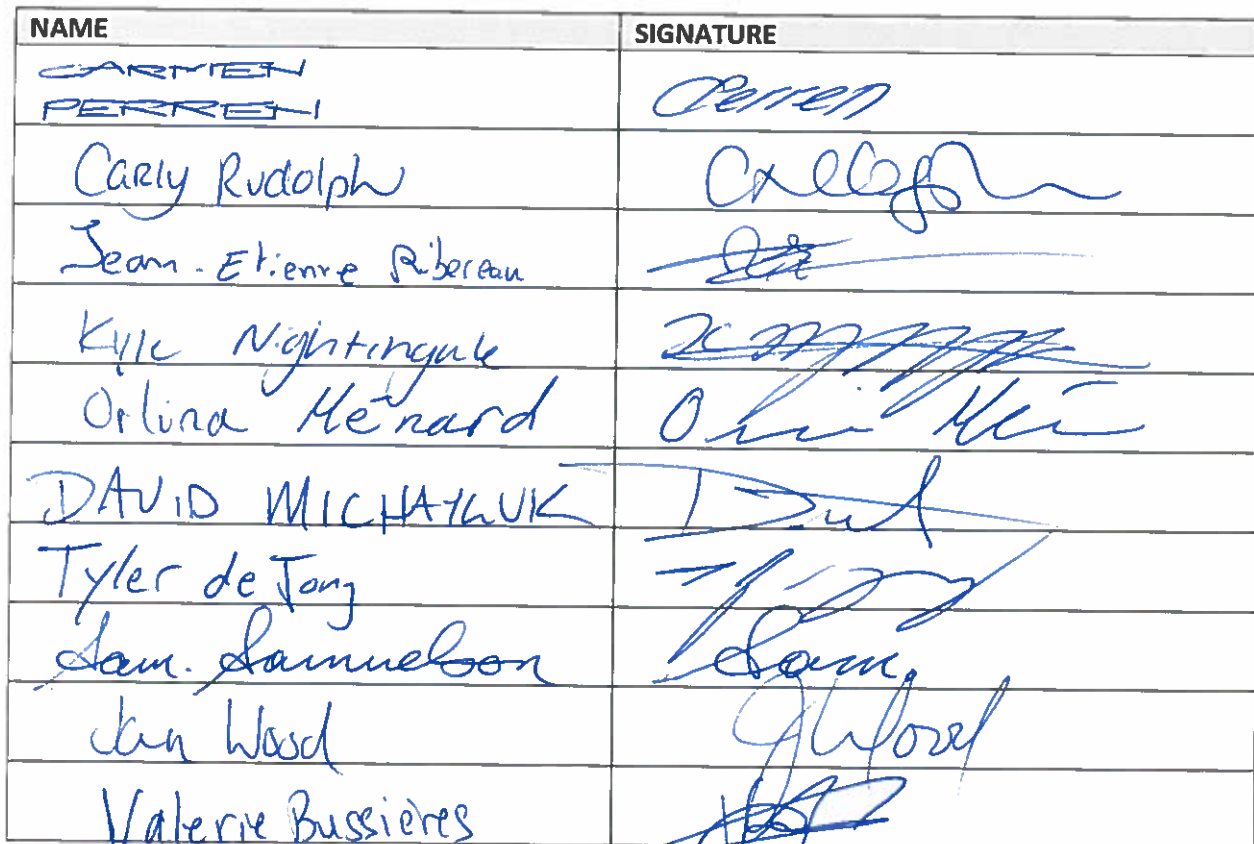 NAME SIGNATURE
CARMEN
PERREN Perren
Carly Rudolph
Jean-Etienne Ribereau
Kyle Nightingale
Orlina Ménard
DAVID MICHAYLUK
Tyler de Jong
Sam. Samuelson Sam.
Jan Wood JWood
Valerie Bussières